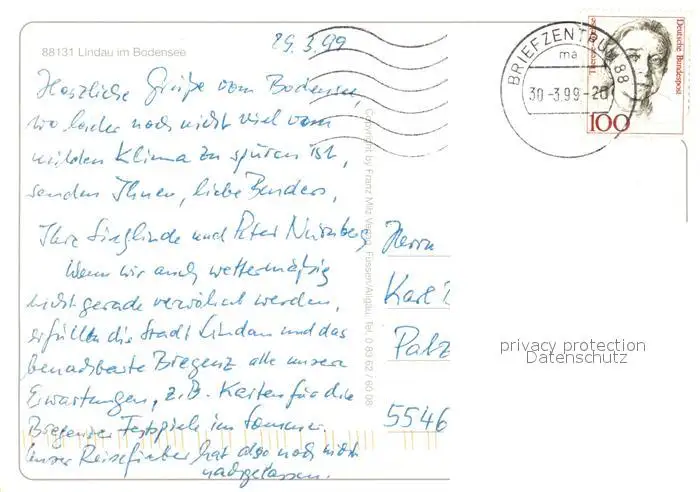 29.3.99
88131 Lindau im Bodensee
Herzliche Grüße vom Bodensee,
wo leider noch nicht viel vom
milden Klima zu spüren ist,
senden Ihnen, liebe Benders,
Ihre Sieglinde und Peter Nürnberg
Wenn wir auch wettermäßig
nicht gerade verwöhnt werden,
erfüllen die Stadt Lindau und das
benachbarte Bregenz alle unsere
Erwartungen, z.B. Karten für die
Bregenzer Festspiele im Sommer.
Unser Reisefieber hat also noch nicht
nachgelassen.
Copyright by Franz Milz Verlag, Füssen/Allgäu, Tel. 0 83 62 / 60 08
BRIEFZENTRUM 88
ma
30-3.99-20
Deutsche Bundespost
100
Herrn
Karl
Palz
5546
privacy protection
Datenschutz